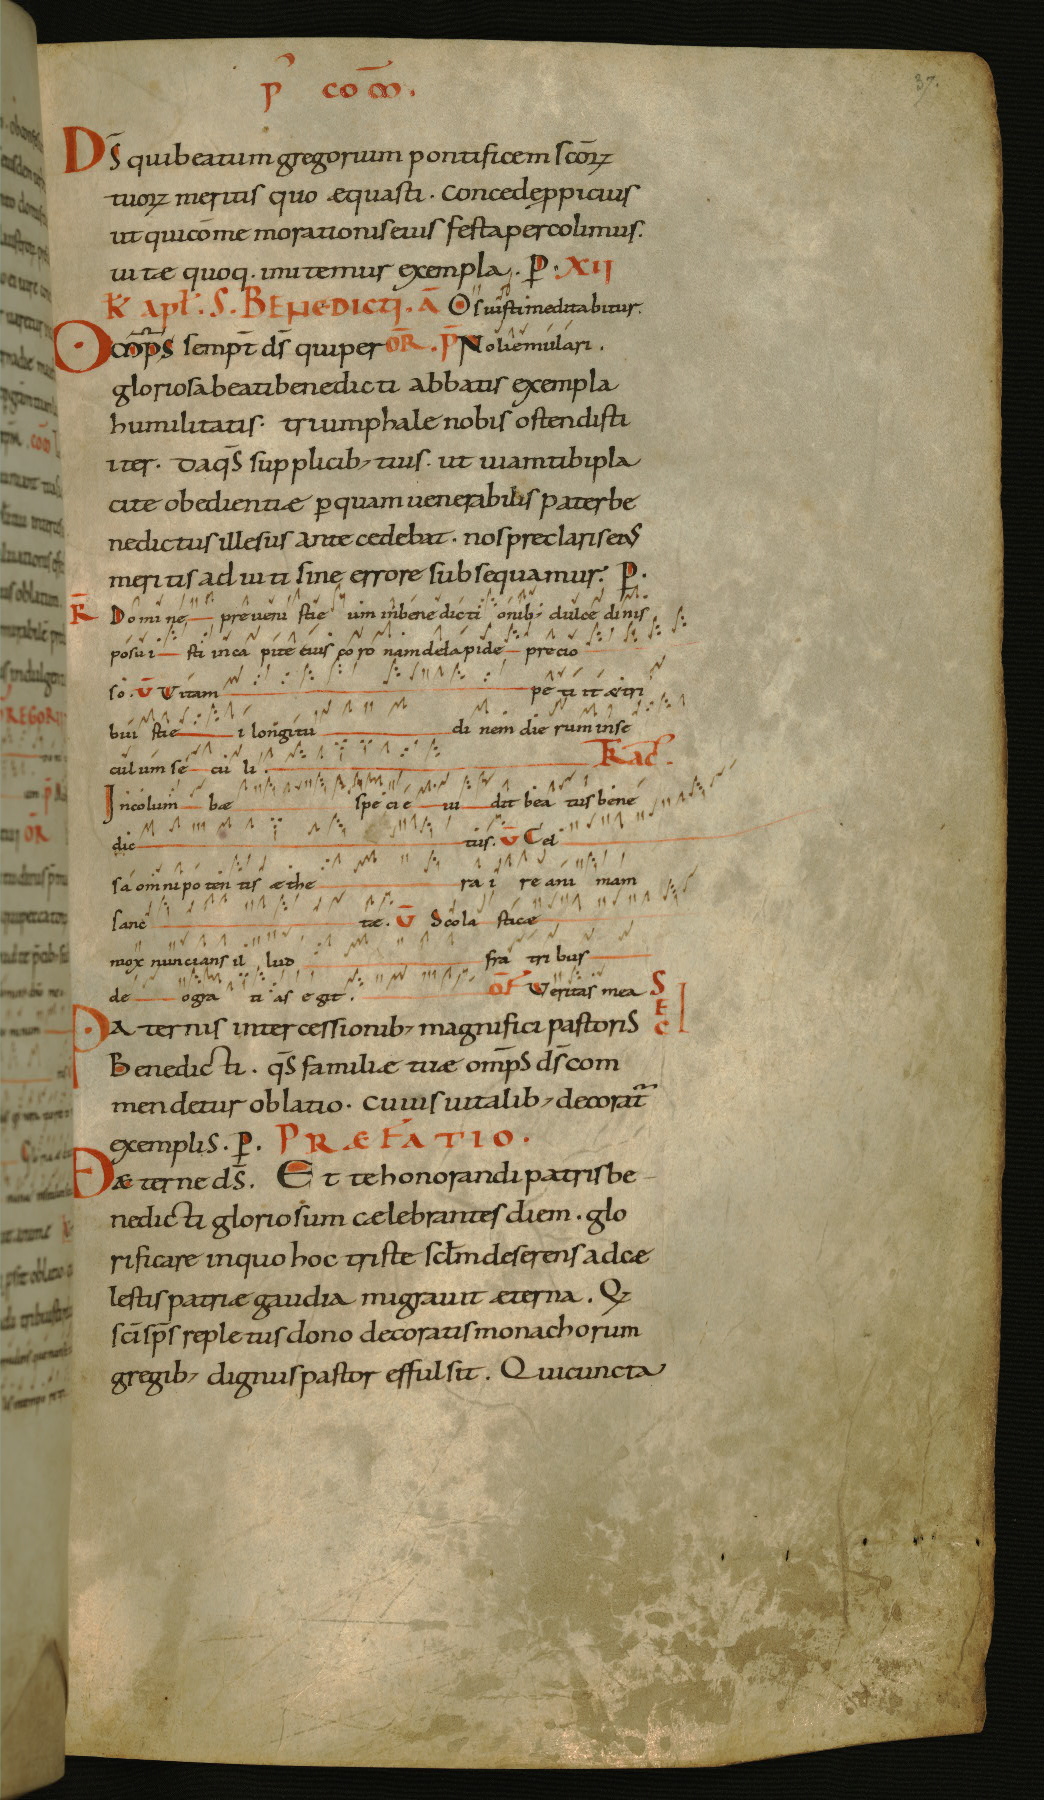 P̄ COM̄.
37.
DS̄ qui beatum gregorium pontificem scōrꝫ
tuorꝫ meritis quo æquasti. Concede ꝓpicius
ut qui cōmemorationis eius festa percolimus.
uitæ quoq. imitemur exempla. P̄. XII
K̄ Apl. S. BENEDICTI. Ā Os iusti meditabitur.
Om̄ps̄ semp̄t ds̄ qui per ŌR. P̄ Noli emulari.
gloriosa beati benedicti abbatis exempla
humilitatis. triumphale nobis ostendisti
iter. Da qs̄ supplicib; tuis. ut uiam tibi pla
cite obedientiæ ꝑ quam uenerabilis pater be
nedictus illesus antecedebat. nos preclaris eius
meritis ad uiti sine errore subsequamur. P̄.
R̄ Domine preuenistie um in benedicti onib; dulcedinis
posuisti in capite eius coronam de lapide precio
so. V̄ Vitam petiit ætri
buistie i longitu dinem dierum in se
culum seculi. TRac̄.
Incolum bæ specie uidit bea tus bene
dic tus. V̄ Cel
sa omnipotentis æthe ra i re ani mam
sanc tæ. V̄ Scola sticæ
mox nuncians illud fra tribus
de ogra ti as egit. ŌF Veritas mea SEC
Paternis intercessionib; magnifici pastoris
Benedicti. qs̄ familiæ tuæ om̄ps̄ ds̄ com
mendetur oblatio. cuius uitalib; decorat̄
exemplis. P̄. PRÆFATIO.
ÆÆterne ds̄. Et te honorandi patris be
nedicti gloriosum cælebrantes diem. glo
rificare in quo hoc triste sclm̄ deserens ad cæ
lestis patriæ gaudia migrauit æterna. Qꝫ
sc̄i sp̄s repletus dono decoratis monachorum
gregib; dignus pastor effulsit. Qui cuncta